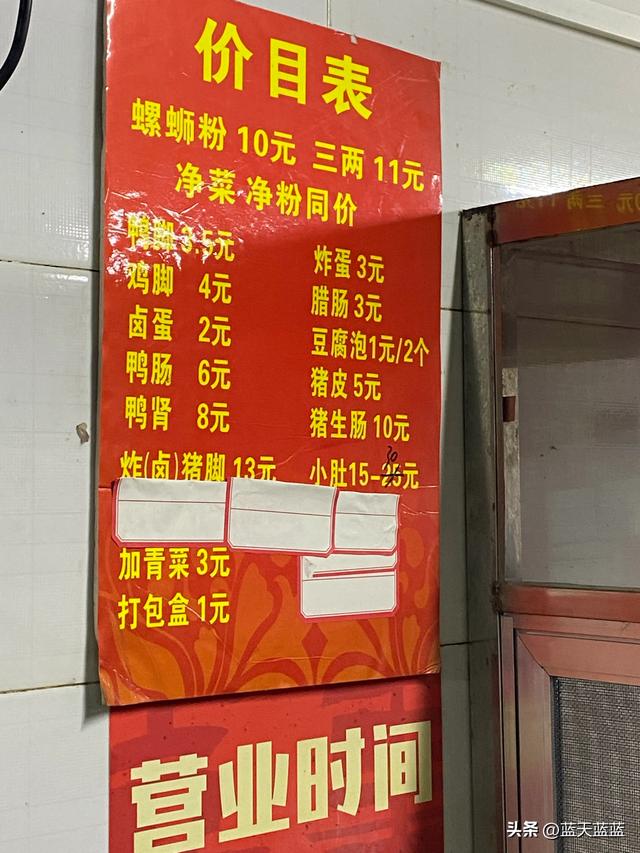 价目表
螺蛳粉 10元 三两 11元
净菜 净粉同价
鸭脚 3.5元
鸡脚 4元
卤蛋 2元
鸭肠 6元
鸭肾 8元
炸(卤)猪脚 13元
炸蛋 3元
腊肠 3元
豆腐泡1元/2个
猪皮 5元
猪生肠 10元
小肚15-25元
30
加青菜 3元
打包盒 1元
营业时间
0元 三两 11元
头条 @蓝天蓝蓝